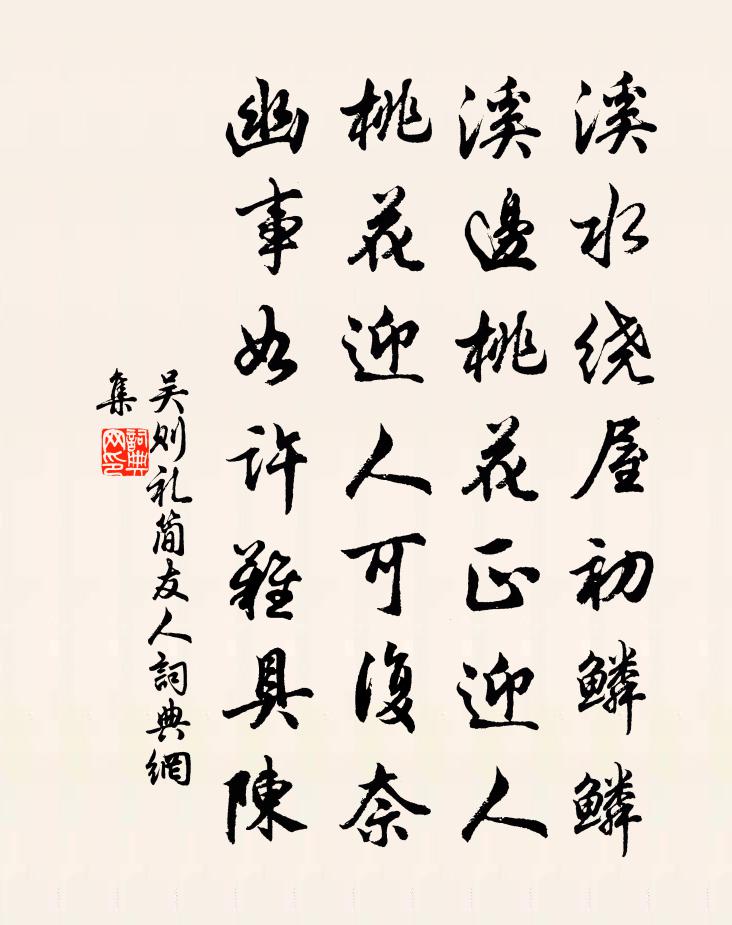 溪水绕屋初鳞鳞
溪邊桃花正迎人
桃花迎人可復奈
幽事如許難具陳
吴则礼简友人詞典網
集
詞典
网